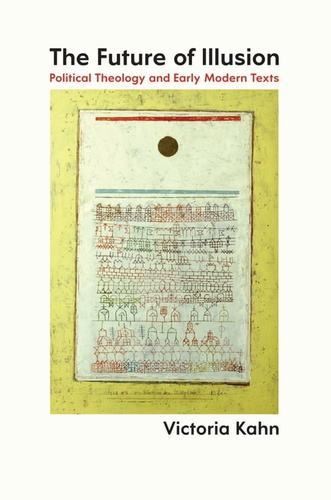 The Future of Illusion
Political Theology and Early Modern Texts
Victoria Kahn